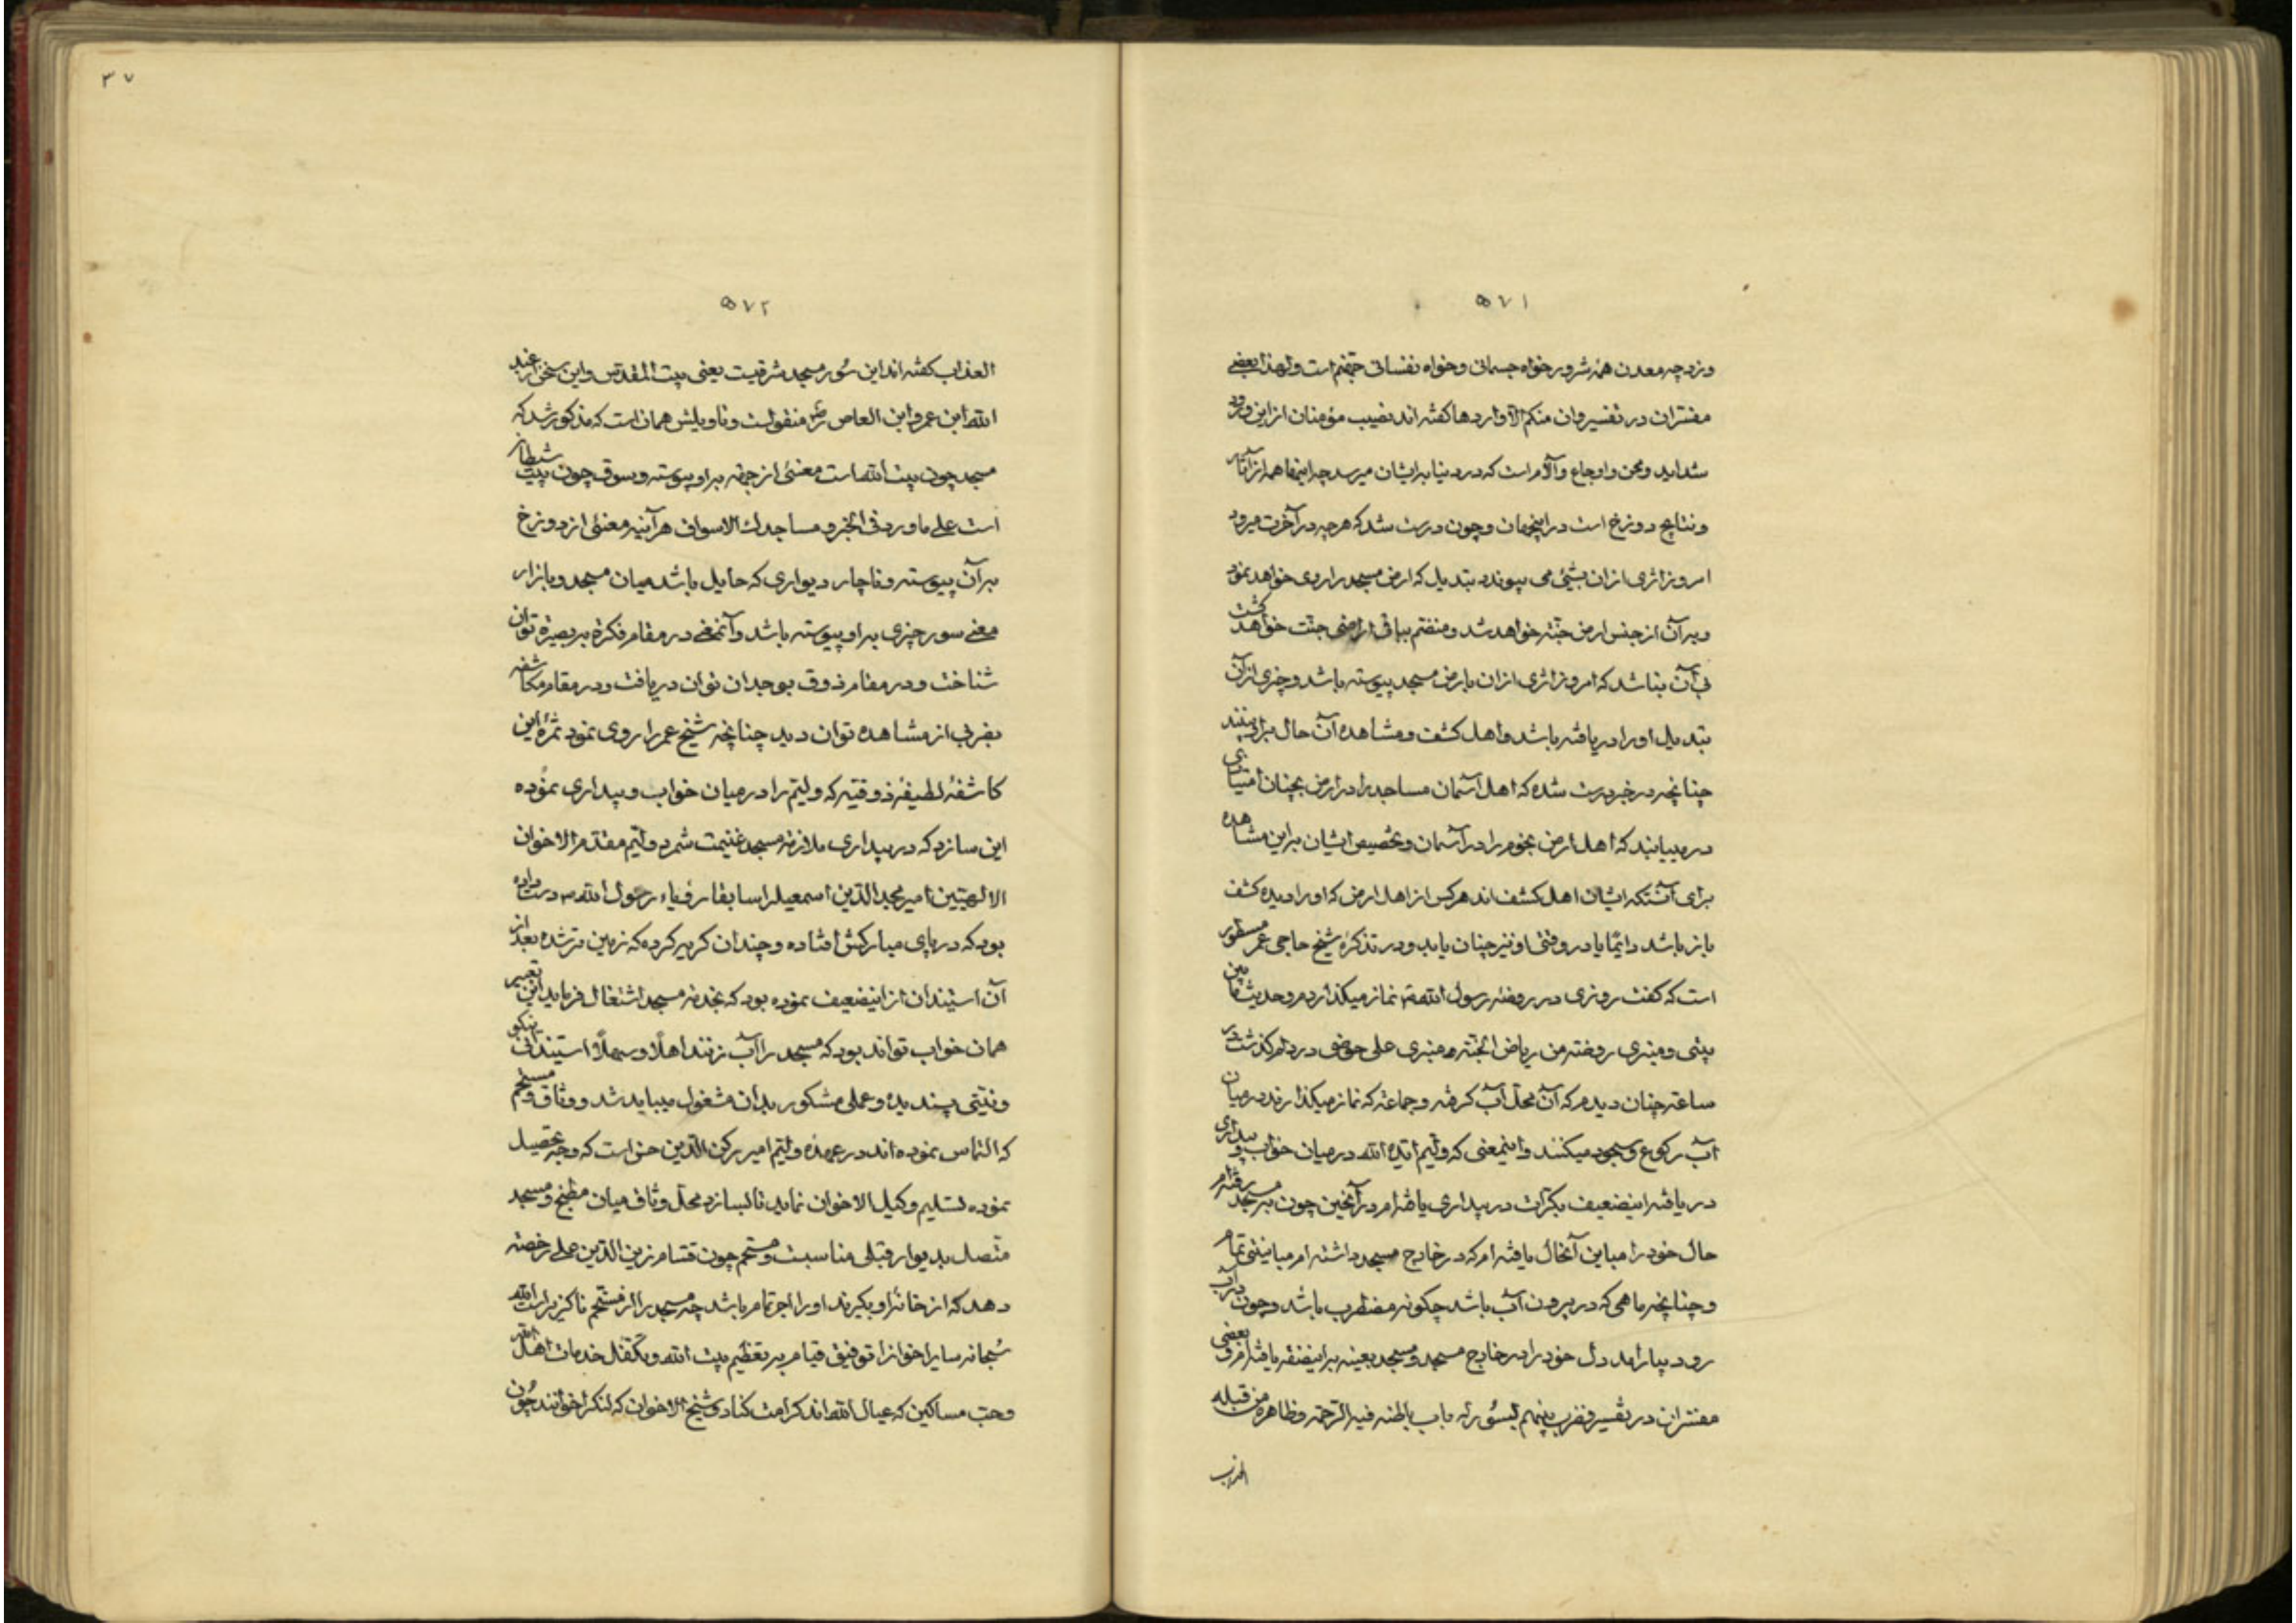 ۵۷۱
و نزد چه معدن همه شرور خواه جسمانی و خواه نفسانی جهنم است ولهذا بعضی
مفسران در تفسیر وان منکم الا واردها گفته اند نصیب مؤمنان از این ورود
شداید و محن و اوجاع و آلام است که در دنیا بر ایشان میرسد چه اینها همه از آثار
و نتایج دوزخ است در اینجهان و چون درست شد که هر چه در آخرت میرود
امروز اثری از ان بشیئ می پیوندد تبدیل که ارض مسجد را روی خواهد نمود
و بر آن از جنس ارض جنته خواهد شد و منضم بباقی اراضی جنت خواهد گشت
بی آن نباشد که امروز اثری از ان بارض مسجد پیوسته باشد و چیزی از آن
تبدیل او را دریافته باشد و اهل کشف و مشاهده آن حال برای بینند
چنانچه در خبر درست شده که اهل آسمان مساجد را در ارض بچنان امتیازی
در مییابند که اهل ارض نجوم را در آسمان و تخصیص ایشان بر این مشاهده
برای آنستکه ایشان اهل کشف اند هر کس از اهل ارض که او را دیده کشف
باز باشد دایما یا در وقتی او نیز چنان یابد و در تذکره شیخ حاجی عمر مسطور
است که گفت روزی در روضه رسول الله نماز میگذاردم و حدیث ما بین
بیتی و منبری روضة من ریاض الجنة و منبری علی حوضی در دلم گذشت در
ساعت چنان دیدم که آن محل آب گرفته و جماعتی که نماز میگذارند در میان
آب رکوع و سجود میکنند و اینمعنی که ولیم ایده الله در میان خواب و بیداری
دریافته اینضعیف بکرات در بیداری یافته ام در آنحین چون بمسجد رفته ام
حال خود را مباین آنحال یافته ام که در خارج مسجد داشته ام مباینتی تمام
و چنانچه ماهی که در بیرون آب باشد چگونه مضطرب باشد و چون در آب
رود بیارامد دل خود را در خارج مسجد و مسجد بعینه بر اینصفه یافته ام و بعضی
مفسران در تفسیر فضرب بینهم بسور له باب باطنه فیه الرحمة وظاهره من قبله
العذاب
۳۷
۵۷۲
العذاب گفته اند این سور مسجد شرقیت یعنی بیت المقدس و این سخن از عبد
الله ابن عمرو ابن العاص منقولست و تاویلش همان است که مذکور شد که
مسجد چون بیت الله است معنئی از جنة بر او پیوسته و سوق چون بیت شیطان
است علی ما ورد فی الخبر و مساجدك الاسواق هر آینه معنئی از دوزخ
بر آن پیوسته و ناچار دیواری که حایل باشد میان مسجد و بازار
معنی سور چیزی بر او پیوسته باشد و آنمعنی در مقام فکرة ببصیرة توان
شناخت و در مقام ذوق بوجدان توان دریافت و در مقام مکاشفه
بضربی از مشاهده توان دید چنانچه شیخ عمر را روی نمود ثمره این
کاشفه لطیفه ذوقیه که ولیم را در میان خواب و بیداری نموده
این سازد که در بیداری ملازمة مسجد غنیمت شمرد ولیم مقدم الاخوان
الالهیین امیر مجد الدین اسمعیل را سابقا رؤیاء رسول الله درست داده
بود که در پای مبارکش افتاده و چندان گریه کرده که زمین تر شده بعد از
آن استیندان از اینضعیف نموده بود که بخدمة مسجد اشتغال فرماید این تعبیر
همان خواب تواند بود که مسجد را آب زنند اهلا وسهلا استیندانی نیکو
و نیتی پسندیده و عملی مشکور بدان مشغول میباید شد و وثاق و مستحم
که التماس نموده اند در عهده ولیم امیر رکن الدین حسن است که وجه تحصیل
نموده تسلیم وکیل الاخوان نماید تا بسازد محل وثاق میان مطبخ و مسجد
متصل بدیوار قبلی مناسبست و مستحم چون قسام زین الدین علی رخصة
دهد که از خانه او بگیرند او را اجر تمام باشد چه مسجد را از مستحم ناگزیر است الله
سبحانه سایر اخوانرا توفیق قیام بر تعظیم بیت الله و تکفل خدمات اهل الله
و حب مساکین که عیال الله اند کرامت کناد و شیخ الاخوان که لنگر اخوانند چون